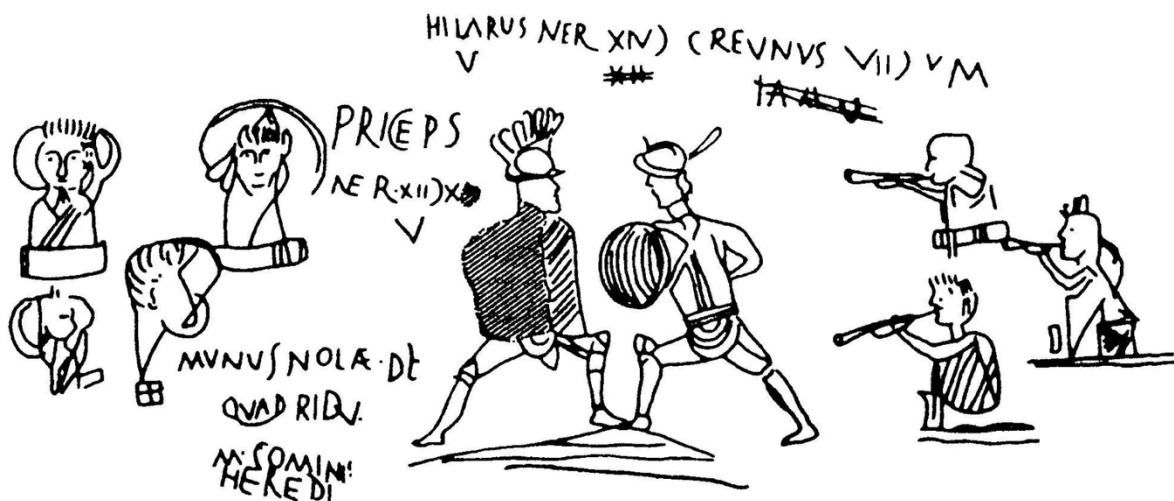 HILARUS NER XIV) (REVNUS VII) V M
V
PRICEPS
NER·XII)X
V
MVNUS NOLÆ·DE
QVADRIDV.
M·SOMINI
HEREDI